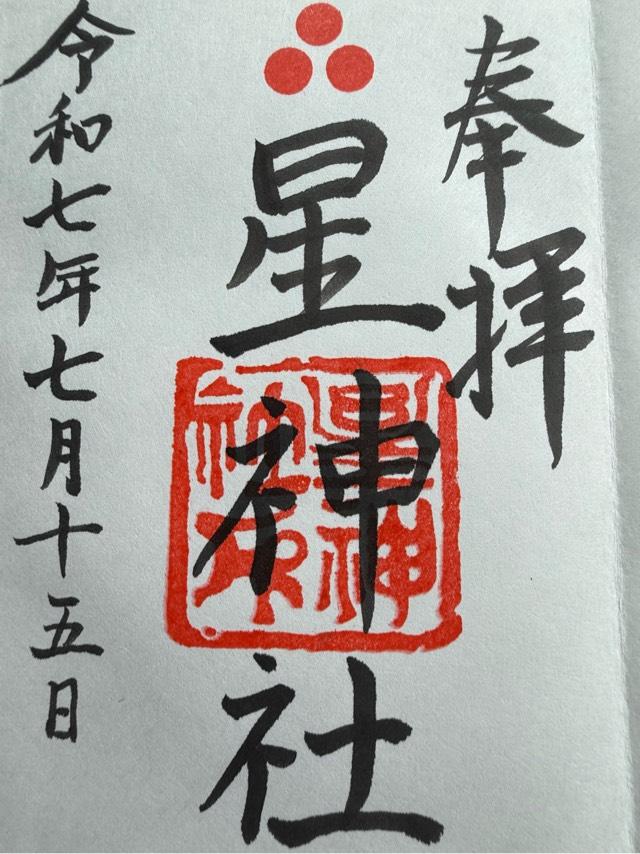 奉拝
星神社
星神社印
令和七年七月十五日